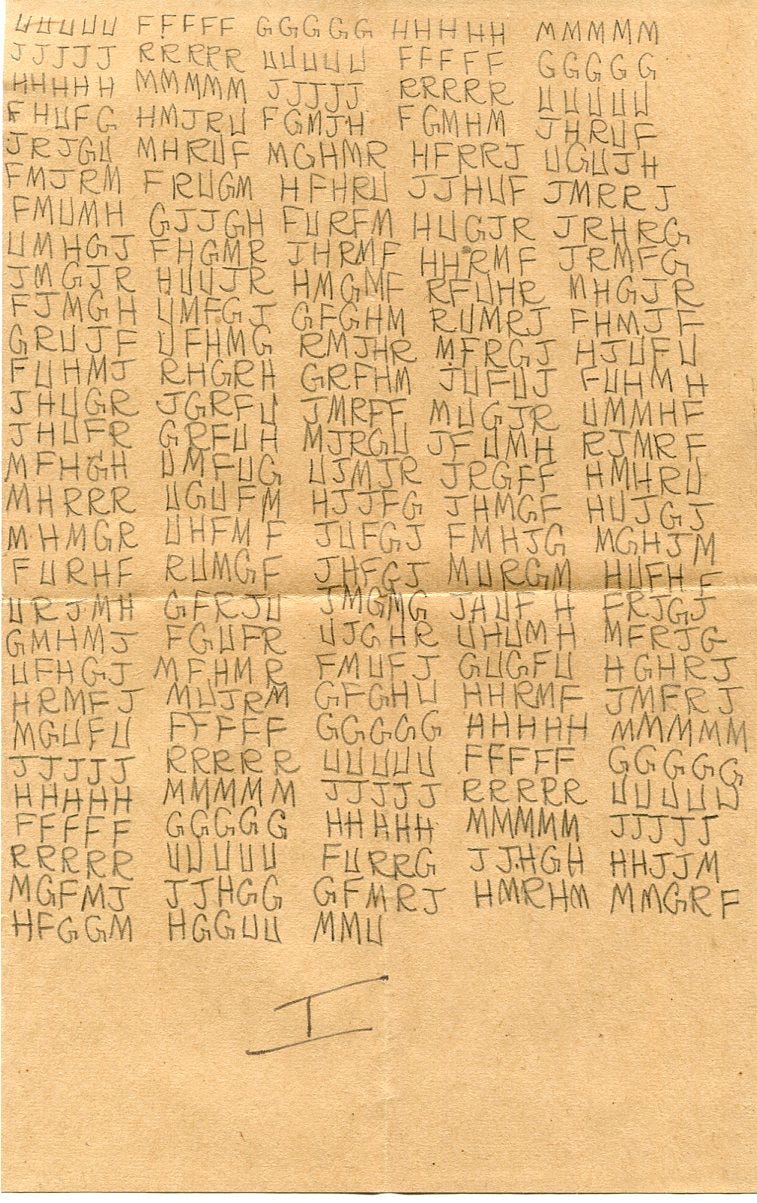 UUUUU FFFFF GGGGG HHHHH MMMMM
JJJJJ RRRRR UUUUU FFFFF GGGGG
HHHHH MMMMM JJJJJ RRRRR UUUUU
FHUFG HMJRU FGMJH FGMHM JHRUF
JRJGU MHRUF MGHMR HFRRJ UGUJH
FMJRM FRUGM HFHRU JJHUF JMRRJ
FMUMH GJJGH FURFM HUGJR JRHRG
UMHGJ FHGMR JHRMF HHRMF JRMFG
JMGJR HUUJR HMGMF RFUHR MHGJR
FJMGH UMFGJ GFGHM RUMRJ FHMJF
GRUJF UFHMG RMJHR MFRGJ HJUFU
FUHMJ RHGRH GRFHM JUFUJ FUHMH
JHUGR JGRFU JMRFF MUGJR UMMHF
JHUFR GRFUH MJRGU JFUMH RJMRF
MFHGH UMFUG UJMJR JRGFF HMHRU
MHRRR UGUFM HJJFG JHMGF HUJGJ
MHMGR UHFMF JUFGJ FMHJG MGHJM
FURHF RUMGF JHFGJ MURGM HUFHF
URJMH GFRJU JMGMG JHUFH FRJGJ
GMHMJ FGUFR UJGHR UHUMH MFRJG
UFHGJ MFHMR FMUFJ GUGFU HGHRJ
HRMFJ MUJRM GFGHU HHRMF JMFRJ
MGUFU FFFFF GGGGG HHHHH MMMMM
JJJJJ RRRRR UUUUU FFFFF GGGGG
HHHHH MMMMM JJJJJ RRRRR UUUUU
FFFFF GGGGG HHHHH MMMMM JJJJJ
RRRRR UUUUU FURRG JJHGH HHJJM
MGFMJ JJHGG GFMRJ HMRHM MMGRF
HFGGM HGGUU MMU
I